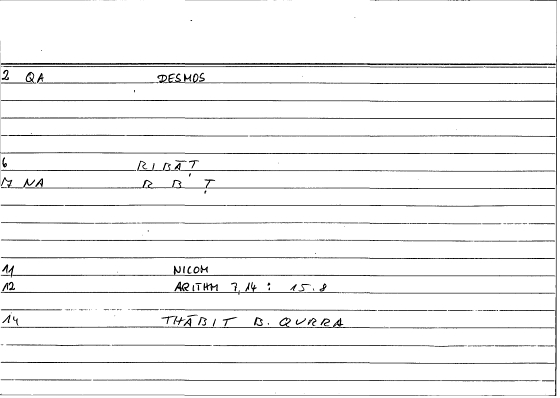 2 QA DESMOS
6 RIBĀṬ
17 NA R B Ṭ
11 NICOM
12 ARITHM 7,14 : 15.8
14 THĀBIT B. QURRA